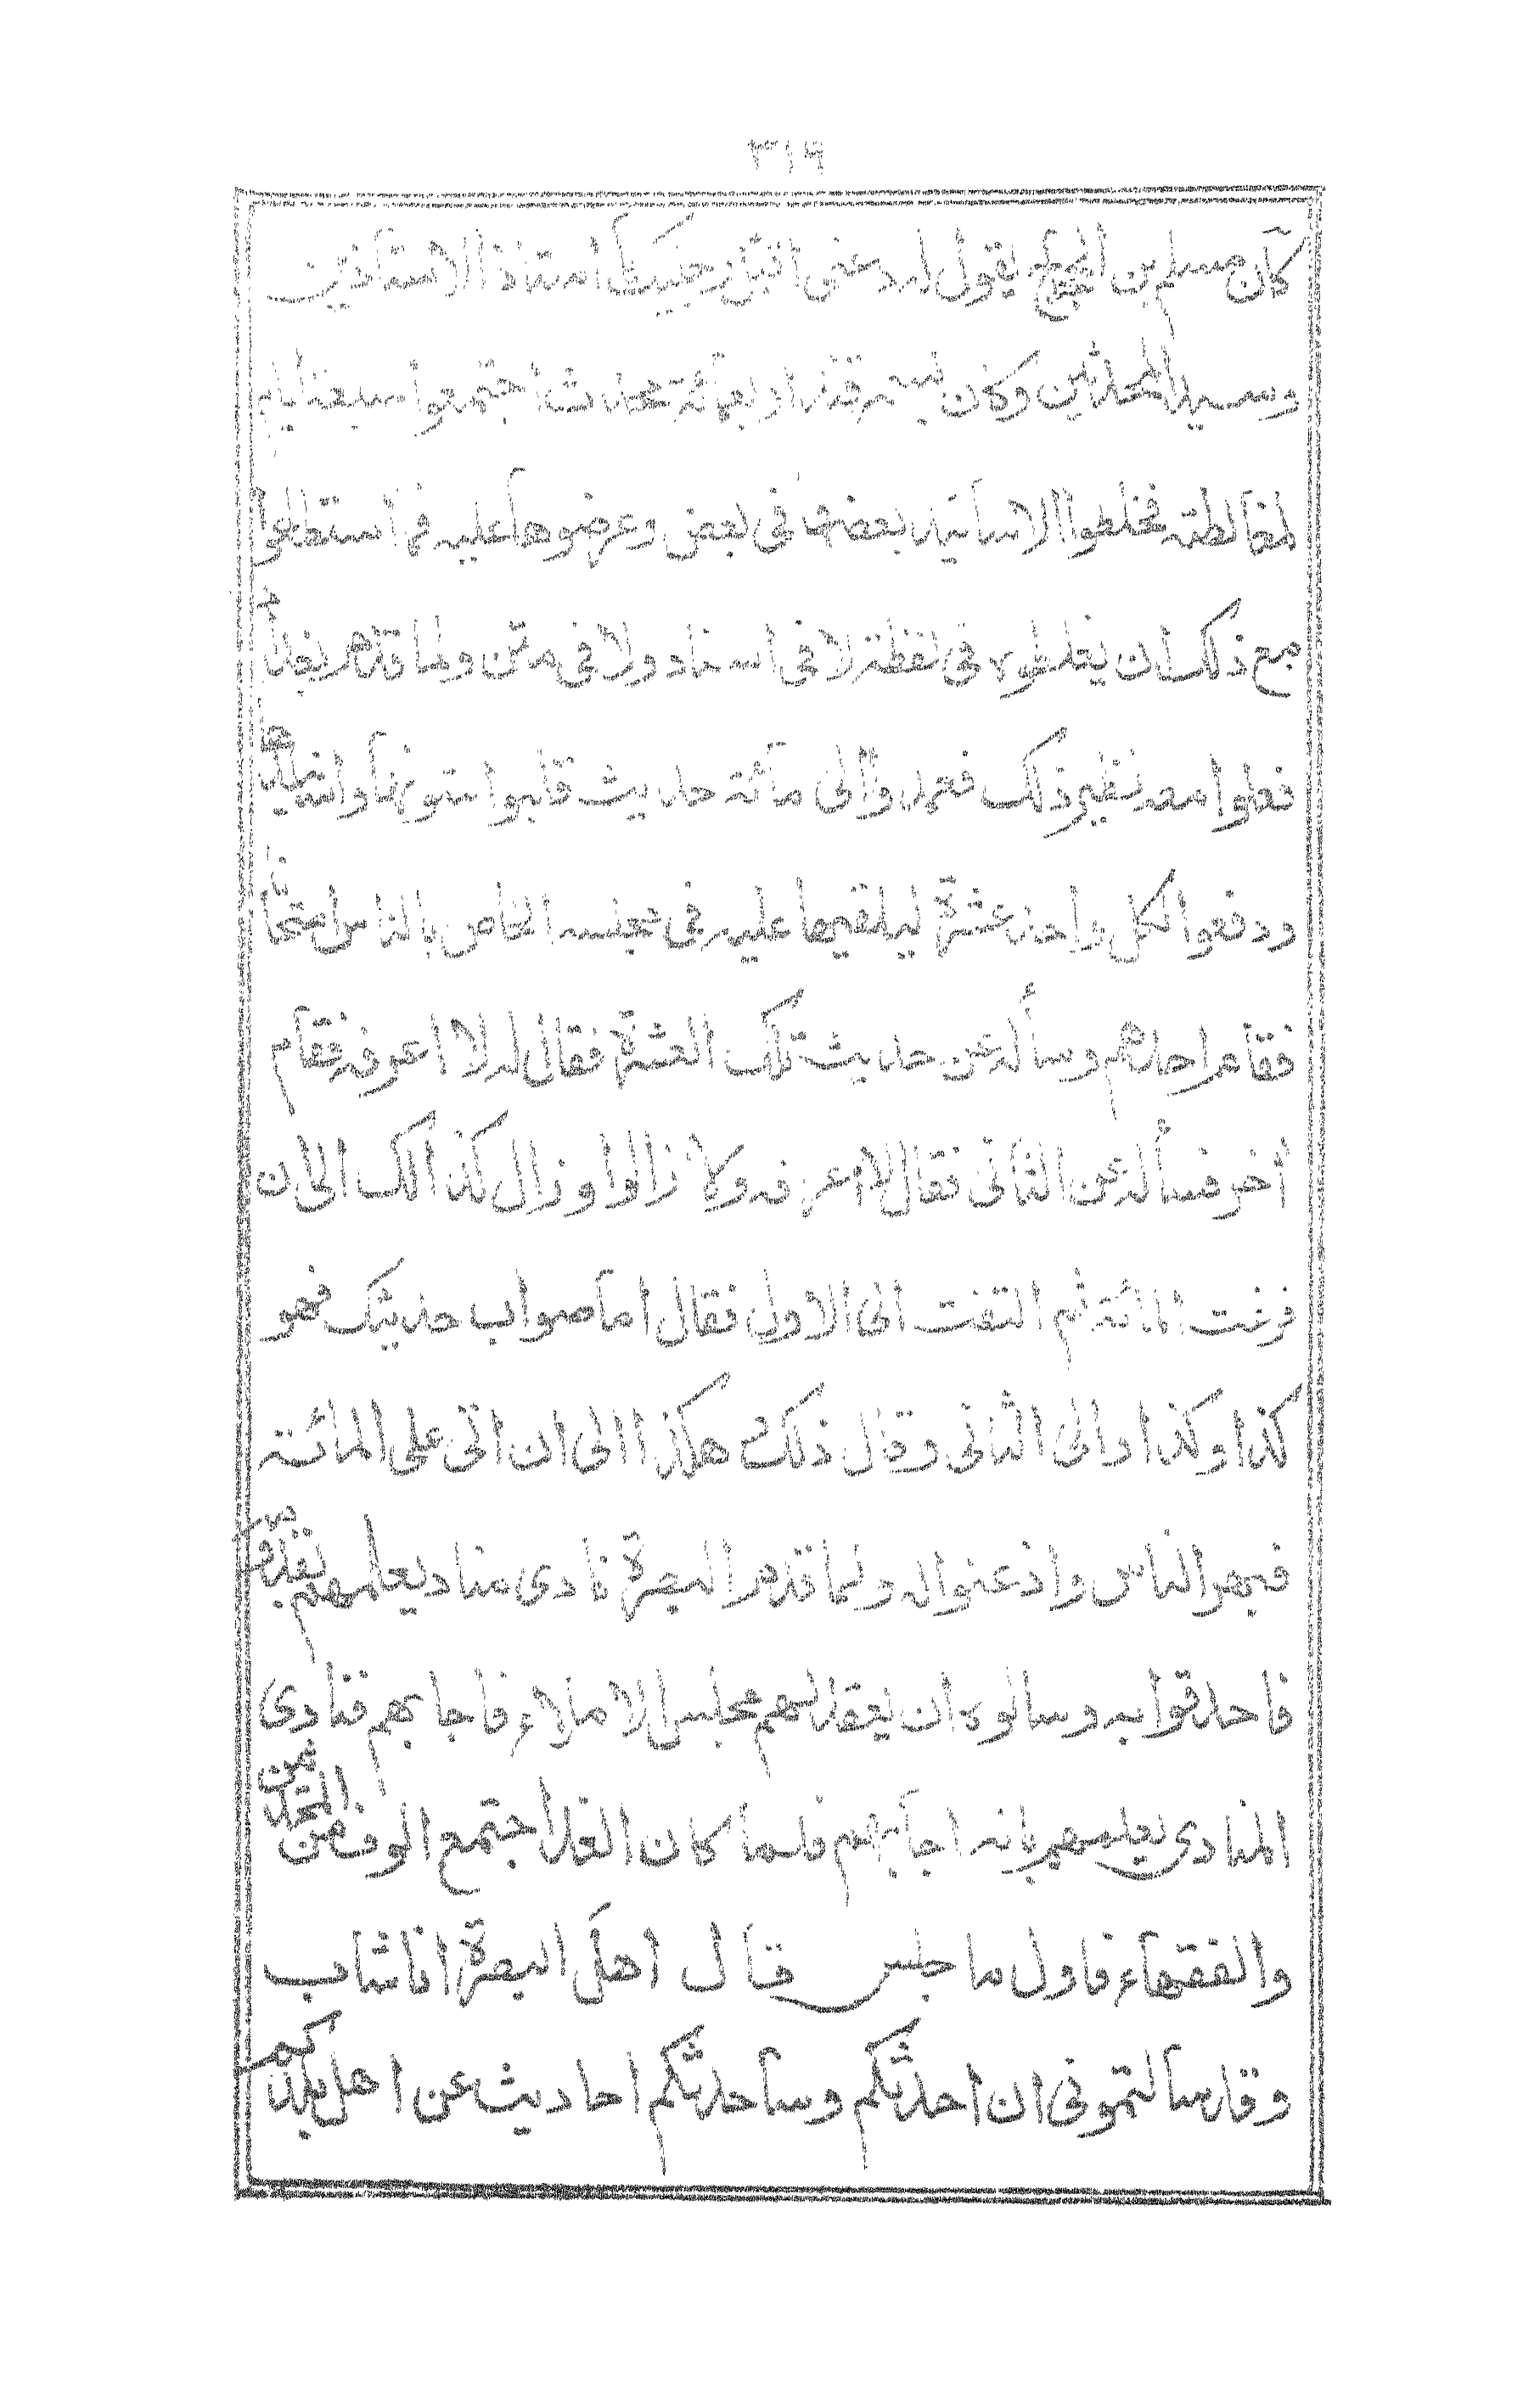 ٣١٩
كان مسلم بن الحجاج يقول له دعنى اقبل رجليك يا استاذ الاستاذين
وسيد المحدثين وكان بسمرقند اربعمائة محدث اجتمعوا سبعة ايام
لمغالطته فخلطوا الاسانيد بعضها فى بعض وعرضوها عليه فما استطاعوا
مع ذلك ان يغلطوه فى لفظة لا فى اسناد ولا فى متن ولما قدم بغداد
فعلوا معه نظير ذلك فعمدوا الى مائة حديث قلبوا متونها واسانيدها
ودفعوا لكل واحد عشرة ليلقيها عليه فى مجلسه الخاص بالناس امتحانا
فقام احدهم وسأله عن حديث تلك العشرة فقال له لا اعرفه فقام
اخر فسأله عن الثانى فقال لا اعرفه ولا زالوا وزال كذالك الى ان
فرغت المائة ثم التفت الى الاول فقال اما صواب حديثك فهو
كذا وكذا والى الثانى وقال ذلك هكذا الى ان اتى على المائة
فبهر الناس واذعنوا له ولما قدم البصرة نادى مناد يعلمهم بقدومه
فاحدقوا به وسالوه ان يعقد لهم مجلس الاملاء فاجابهم فنادى
المنادى يعلمهم بانه اجابهم فلما كان الغد اجتمع الوف من المحدثين
والفقهاء فاول ما جلس قال اهل البصرة انا شاب
وقد سالتمونى ان احدثكم وسأحدثكم احاديث عن اهل بلدكم